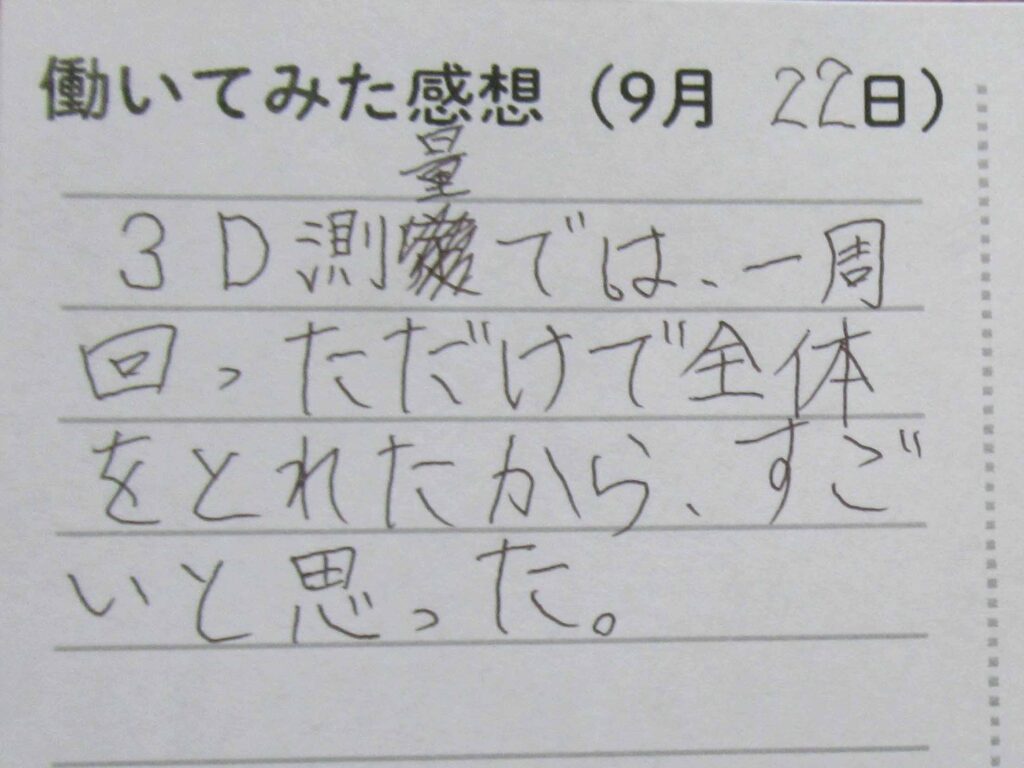 働いてみた感想（9月 22日）
3D測量では、一周
回っただけで全体
をとれたから、すご
いと思った。